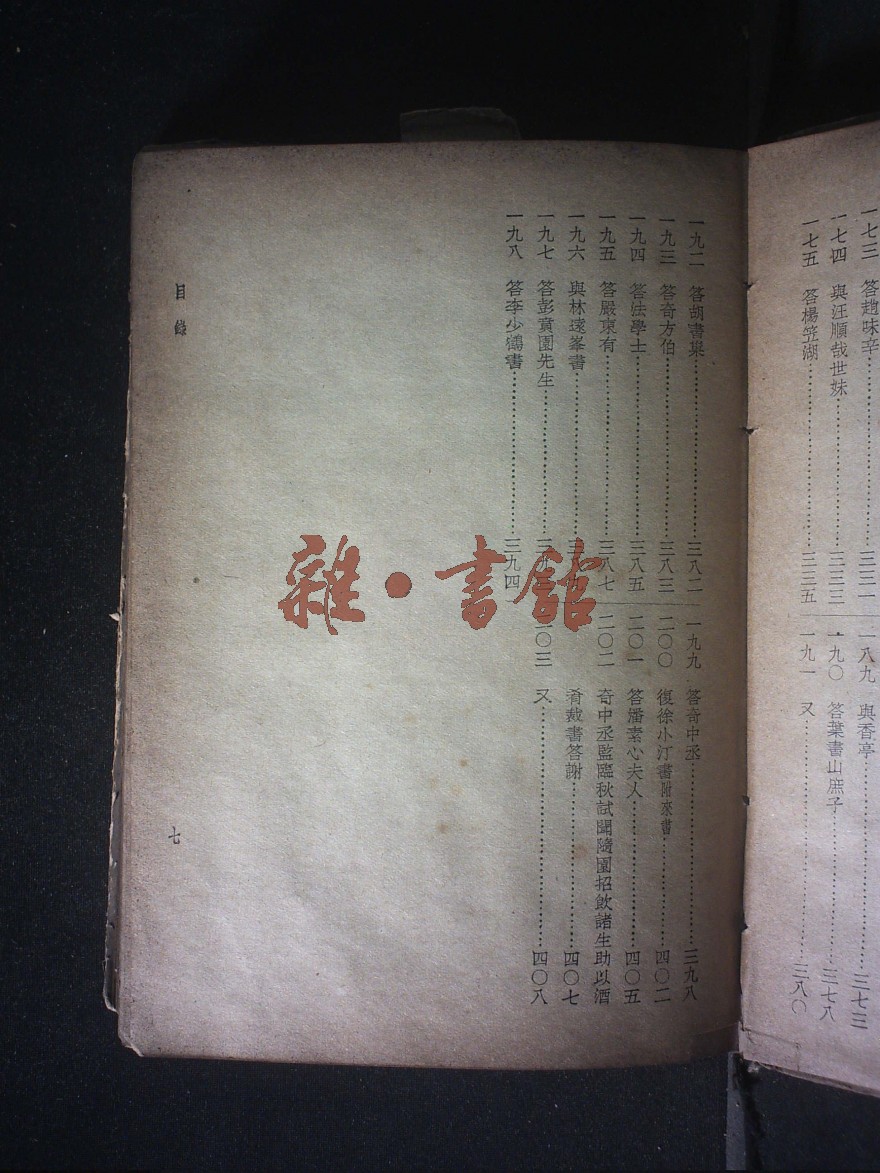 一七三 答趙味辛……三三一
一七四 與汪順哉世妹……三三三
一七五 答楊笠湖……三三五
一八九 與香亭……三七三
一九〇 答葉書山庶子……三七八
一九一 又……三八〇
一九二 答胡書巢……三八二
一九三 答奇方伯……三八三
一九四 答法學士……三八五
一九五 答嚴東有……三八七
一九六 與林遠峯書……三
一九七 答彭賁園先生……三九
一九八 答李少鶴書……三九四
一九九 答奇中丞……三九八
二〇〇 復徐小汀書附來書……四〇二
二〇一 答潘素心夫人……四〇五
二〇二 奇中丞監臨秋試聞隨園招飲諸生助以酒
肴戴書答謝……四〇七
二〇三 又……四〇八
目錄
七
雜·書館